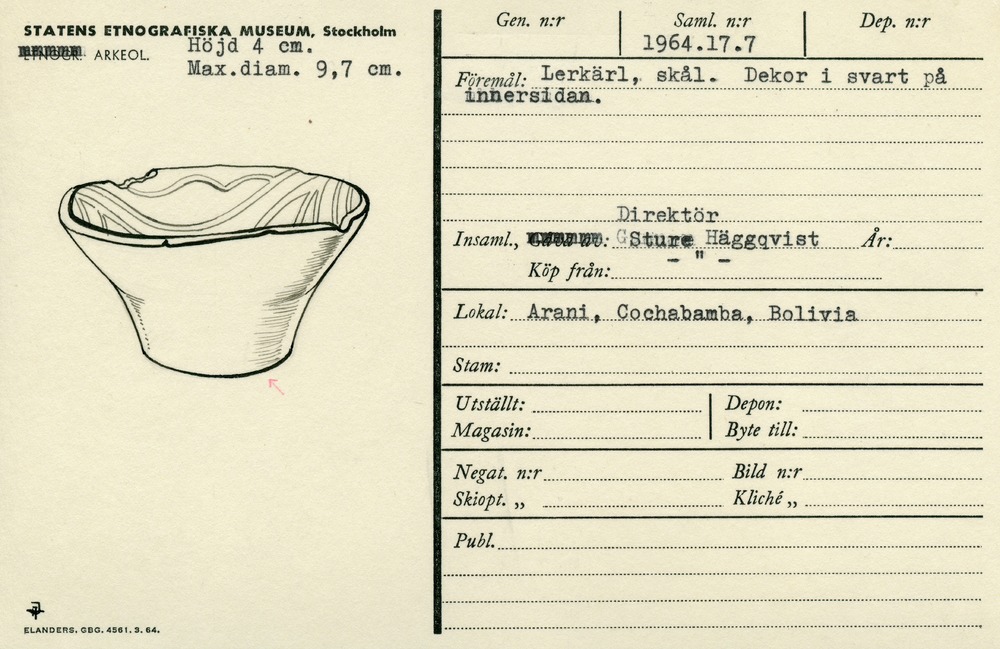 STATENS ETNOGRAFISKA MUSEUM, Stockholm
ETNOGR. ARKEOL.
Höjd 4 cm.
Max.diam. 9,7 cm.
ELANDERS. GBG. 4561. 9. 64.
Gen. n:r
Saml. n:r
Dep. n:r
1964.17.7
Föremål: Lerkärl, skål. Dekor i svart på
innersidan.
Direktör
Insaml., Gåva av: Sture Häggqvist År:
Köp från: - " -
Lokal: Arani, Cochabamba, Bolivia
Stam:
Utställt: Depon:
Magasin: Byte till:
Negat. n:r Bild n:r
Skiopt. „ Kliché „
Publ.